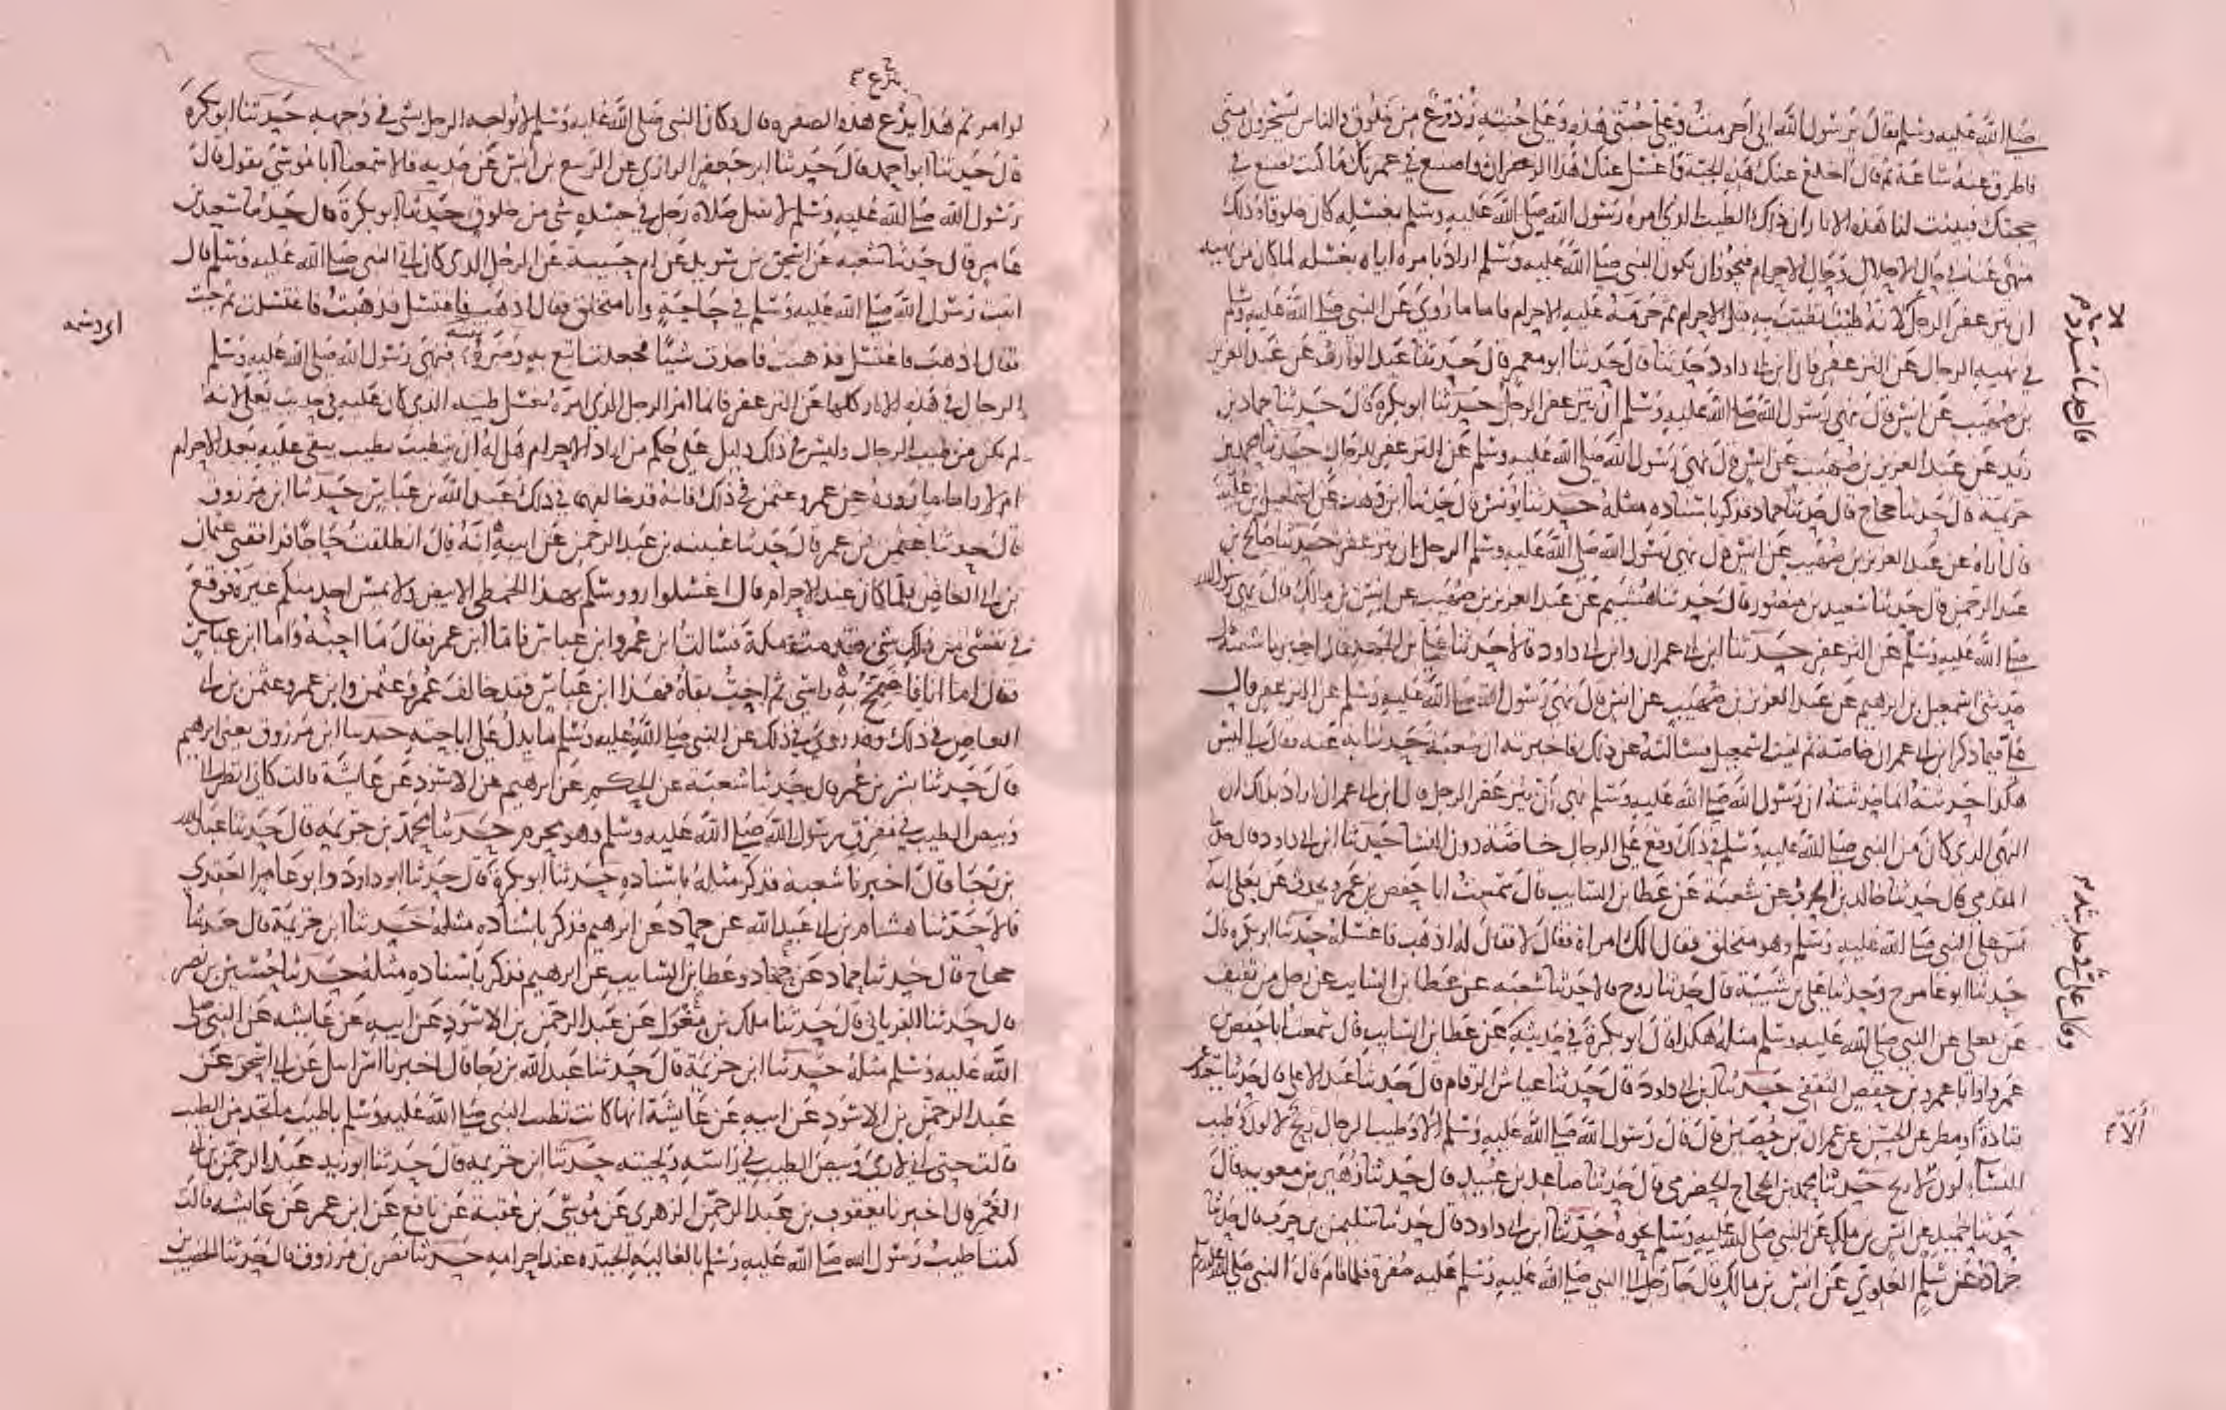 صلى الله عليه وسلم فقال يرسول الله اني احرمت وعلي جبتي هذه وعلى جبته ردغ من خلوق والناس يسخرون مني
فاطرق عنه ساعة ثم قال اخلع عنك هذه الجبة واغسل عنك هذا الزعفران واصنع في عمرتك ما كنت تصنع في
حجتك فبينت لنا هذه الاثار ان ذلك الطيب الذي امره رسول الله صلى الله عليه وسلم بغسله كان خلوقا وذلك
منهي عنه في حال الاحلال وحال الاحرام فيجوز ان يكون النبي صلى الله عليه وسلم اراد بامره اياه بغسله لما كان من نهيه
ان يتزعفر الرجل لا نه طيب تطيب به قبل الاحرام ثم حرمه عليه الاحرام فاما ما روي عن النبي صلى الله عليه وسلم
في نهيه الرجال عن التزعفر فان ابن ابي داود حدثنا قال حدثنا ابو معمر قال حدثنا عبد الوارث عن عبد العزيز
بن صهيب عن انس قال نهى رسول الله صلى الله عليه وسلم ان يتزعفر الرجل حدثنا ابو بكرة قال حدثنا حماد بن
زيد عن عبد العزيز بن صهيب عن انس قال نهى رسول الله صلى الله عليه وسلم عن التزعفر للرجال حدثنا محمد بن
خزيمة قال حدثنا حجاج قال حدثنا حماد فذكر باسناده مثله حدثنا يونس قال حدثنا ابن وهب عن اسمعيل بن علية
قال اراه عن عبد العزيز بن صهيب عن انس قال نهى رسول الله صلى الله عليه وسلم الرجل ان يتزعفر حدثنا صالح بن
عبد الرحمن قال حدثنا سعيد بن منصور قال حدثنا هشيم عن عبد العزيز بن صهيب عن انس بن مالك قال نهى رسول الله
صلى الله عليه وسلم عن التزعفر حدثنا ابن ابي عمران وابن ابي داود قالا حدثنا علي بن الجعد قال اخبرنا شعبة قال
حدثني اسمعيل بن ابرهيم عن عبد العزيز بن صهيب عن انس قال نهى رسول الله صلى الله عليه وسلم عن التزعفر قال
علي فيما ذكر ابن ابي عمران خاصة ثم لقيت اسمعيل فسالته عن ذلك فاخبرته ان شعبة حدثنا به عنه فقال لي ليس
هكذا حدثته انما حدثته ان رسول الله صلى الله عليه وسلم نهى ان يتزعفر الرجل قال ابن ابي عمران اراد بذلك ان
النهي الذي كان من النبي صلى الله عليه وسلم في ذلك وقع على الرجال خاصة دون النسا حدثنا ابن ابي داود قال حدثنا
المقدمي قال حدثنا خالد بن الحرث عن شعبة عن عطا بن السايب قال سمعت ابا حفص بن عمرو يحدث عن يعلى انه
مر على النبي صلى الله عليه وسلم وهو متخلق فقال الك امراة فقال لا فقال له اذهب فاغسله حدثنا ابو بكرة قال
حدثنا ابو عامر ح وحدثنا علي بن شيبة قال حدثنا روح قالا حدثنا شعبة عن عطا بن السايب عن رجل من ثقيف
عن يعلى عن النبي صلى الله عليه وسلم مثله هكذا قال ابو بكرة في حديثه عن عطا بن السايب قال سمعت ابا حفص بن
عمرو او ابا عمرو بن حفص الثقفي حدثنا ابن ابي داود قال حدثنا عياش الرقام قال حدثنا عبد الاعلى قال حدثنا سعيد عن
قتادة او مطر عن الحسن عن عمران بن حصين قال قال رسول الله صلى الله عليه وسلم الا وطيب الرجال ريح لا لون وطيب
النسا لون لا ريح حدثنا محمد بن الحجاج الحضرمي قال حدثنا صاعد بن عبيد قال حدثنا زهير بن معوية قال
حدثنا حميد عن انس بن ملك عن النبي صلى الله عليه وسلم نحوه حدثنا ابن ابي داود قال حدثنا سليمن بن حرب قال حدثنا
حماد عن سلم العلوي عن انس بن مالك قال جا رجل الى النبي صلى الله عليه وسلم عليه صفرة فلما قام قال النبي صلى الله عليه وسلم
وقال علي في حديثه
لو امرتم هذا يدع هذه الصفرة قال وكان النبي صلى الله عليه وسلم لا يواجه الرجل بشي في وجهه حدثنا ابو بكرة
قال حدثنا ابو احمد قال حدثنا ابو جعفر الرازي عن الربيع بن انس عن جديه قالا سمعنا ابا موسى يقول قال
رسول الله صلى الله عليه وسلم لا تقبل صلاة رجل في جسده شي من خلوق حدثنا ابو بكرة قال حدثنا سعيد بن
عامر قال حدثنا شعبة عن اسحق بن سويد عن ام حبيبة عن الرجل الذي كان اتى النبي صلى الله عليه وسلم قال
اتيت رسول الله صلى الله عليه وسلم في حاجة وانا متخلق فقال اذهب فاغتسل فذهبت فاغتسلت ثم جيت
فقال اذهب فاغتسل فذهبت فاخذت شيا فجعلت اتتبع به وضره فنهى رسول الله صلى الله عليه وسلم
الرجال في هذه الاثار كلها عن التزعفر فانما امر الرجل الذي امره بغسل طيبه الذي كان عليه في حديث يعلى لانه
لم يكن من طيب الرجال وليس في ذلك دليل على حكم من اراد الاحرام هل له ان يتطيب بطيب يبقى عليه بعد الاحرام
ام لا واما ما رووه عن عمر وعثمن في ذلك فانه قد خالفهما في ذلك عبد الله بن عباس حدثنا ابن مرزوق
قال حدثنا عثمن بن عمر قال حدثنا عيينة بن عبد الرحمن عن ابيه انه قال انطلقت حاجا فرافقني عثمان
بن ابي العاص فلما كان عند الاحرام قال اغسلوا رووسكم بهذا الخطمي الابيض ولا يمس احد منكم غيره فوقع
في نفسي من ذلك شي فقدمت مكة فسالت ابن عمر وابن عباس فاما ابن عمر فقال ما احبه واما ابن عباس
فقال اما انا فاضمخ به راسي ثم احب بقاه فهذا ابن عباس فقد خالف عمر وعثمن وابن عمر وعثمن بن ابي
العاص في ذلك وقد روي في ذلك عن النبي صلى الله عليه وسلم ما يدل على اباحته حدثنا ابن مرزوق يعني ابرهيم
قال حدثنا بشر بن عمر قال حدثنا شعبة عن الحكم عن ابرهيم عن الاسود عن عايشة قالت كاني انظر الى
وبيص الطيب في مفرق رسول الله صلى الله عليه وسلم وهو محرم حدثنا محمد بن خزيمة قال حدثنا عبد الله
بن رجا قال اخبرنا شعبة فذكر مثله باسناده حدثنا ابو بكرة قال حدثنا ابو داود وابو عامر العقدي
قالا حدثنا هشام بن ابي عبد الله عن حماد عن ابرهيم فذكر باسناده مثله حدثنا ابن خزيمة قال حدثنا
حجاج قال حدثنا حماد عن حماد وعطا بن السايب عن ابرهيم فذكر باسناده مثله حدثنا حسين بن نصر
قال حدثنا الفريابي قال حدثنا ملك بن مغول عن عبد الرحمن بن الاسود عن ابيه عن عايشه عن النبي صلى
الله عليه وسلم مثله حدثنا ابن خزيمة قال حدثنا عبد الله بن رجا قال اخبرنا اسرائيل عن ابي اسحق عن
عبد الرحمن بن الاسود عن ابيه عن عايشة انها كانت تطيب النبي صلى الله عليه وسلم باطيب ما تجد من الطيب
قالت حتى اني لارى وبيص الطيب في راسه ولحيته حدثنا ابن خزيمة قال حدثنا ابو زيد عبد الرحمن بن ابي
الغمر قال اخبرنا يعقوب بن عبد الرحمن الزهري عن موسى بن عقبة عن نافع عن ابن عمر عن عايشه قالت
كنت اطيب رسول الله صلى الله عليه وسلم بالغالية الجيدة عند احرامه حدثنا نصر بن مرزوق قال حدثنا الخصيب بن